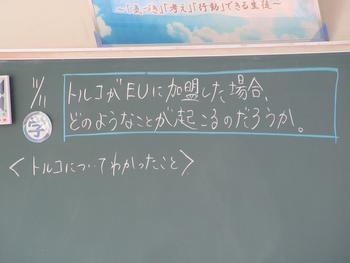 ～「気づき」「考え」「行動」できる生徒～
11/11
学
トルコがEUに加盟した場合、
どのようなことが起こるのだろうか。
＜トルコについてわかったこと＞